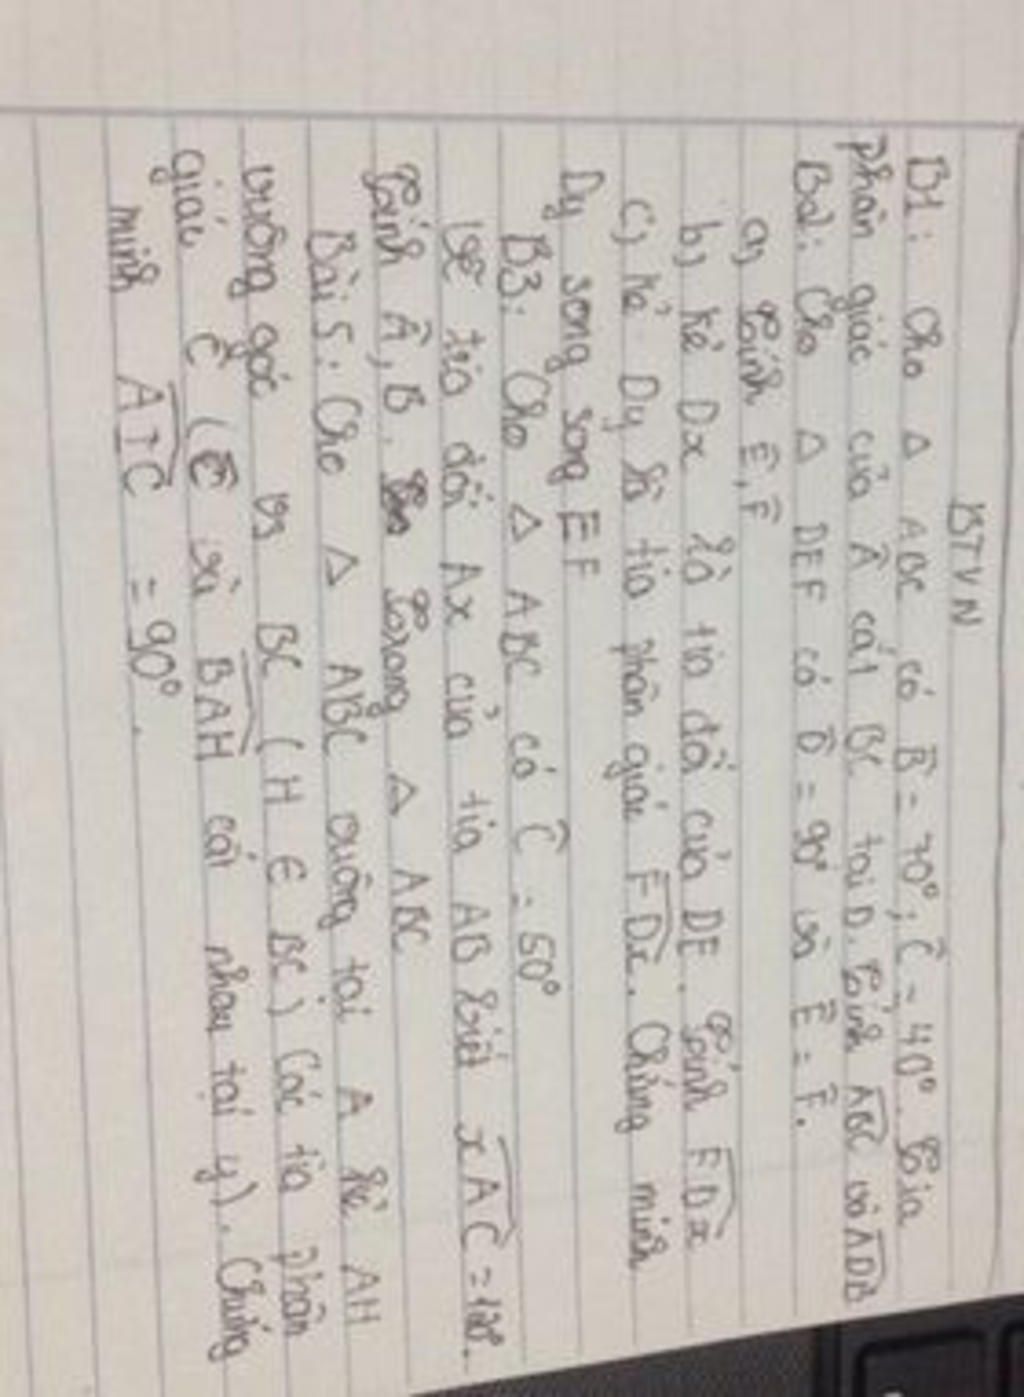 BTVN
B1: Cho Δ ABC có B̂ = 70°; Ĉ = 40°. Tia
phân giác của Â cắt BC tại D. Tính ABC và ADB
Bài 2: Cho Δ DEF có D̂ = 90° và Ê = F̂.
a, Tính Ê, F̂
b, kẻ Dx là tia đối của DE. Tính FDx
c, kẻ Dy là tia phân giác FDx. Chứng minh
Dy song song EF
B3: Cho Δ ABC có Ĉ = 50°
Vẽ tia đối Ax của tia AB biết xAC = 120°.
Tính Â, B. trong Δ ABC
Bài 5: Cho Δ ABC vuông tại A kẻ AH
vuông góc vs BC (H ∈ BC) Các tia phân
giác Ĉ (Ĉ và BAH cắt nhau tại y). Chứng
minh AIC = 90°.